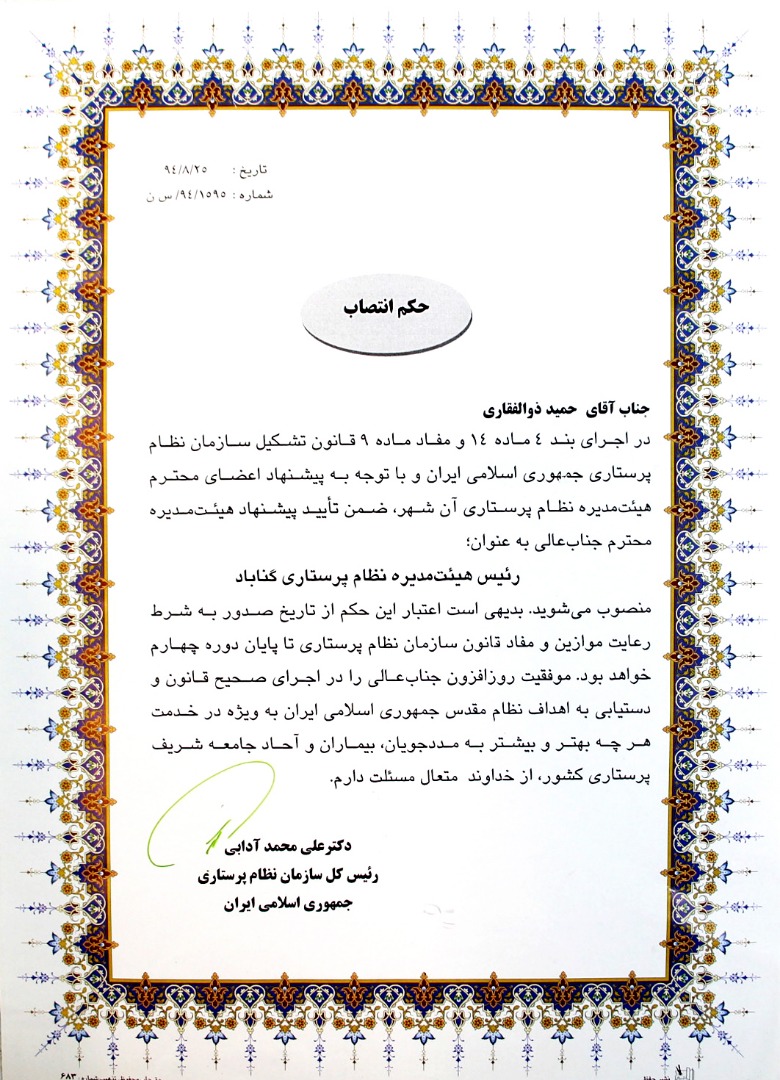 تاریخ : ۹٤/۸/۲٥
شماره : ۹٤/۱٥۹٥/ س ن
حکم انتصاب
جناب آقای حمید ذوالفقاری
در اجرای بند ٤ ماده ۱٤ و مفاد ماده ۹ قانون تشکیل سازمان نظام
پرستاری جمهوری اسلامی ایران و با توجه به پیشنهاد اعضای محترم
هیئت‌مدیره نظام پرستاری آن شهر، ضمن تأیید پیشنهاد هیئت‌مدیره
محترم جناب‌عالی به عنوان؛
رئیس هیئت‌مدیره نظام پرستاری گناباد
منصوب می‌شوید. بدیهی است اعتبار این حکم از تاریخ صدور به شرط
رعایت موازین و مفاد قانون سازمان نظام پرستاری تا پایان دوره چهارم
خواهد بود. موفقیت روزافزون جناب‌عالی را در اجرای صحیح قانون و
دستیابی به اهداف نظام مقدس جمهوری اسلامی ایران به ویژه در خدمت
هر چه بهتر و بیشتر به مددجویان، بیماران و آحاد جامعه شریف
پرستاری کشور، از خداوند متعال مسئلت دارم.
دکترعلی محمد آدابی
رئیس کل سازمان نظام پرستاری
جمهوری اسلامی ایران
۶۸۳